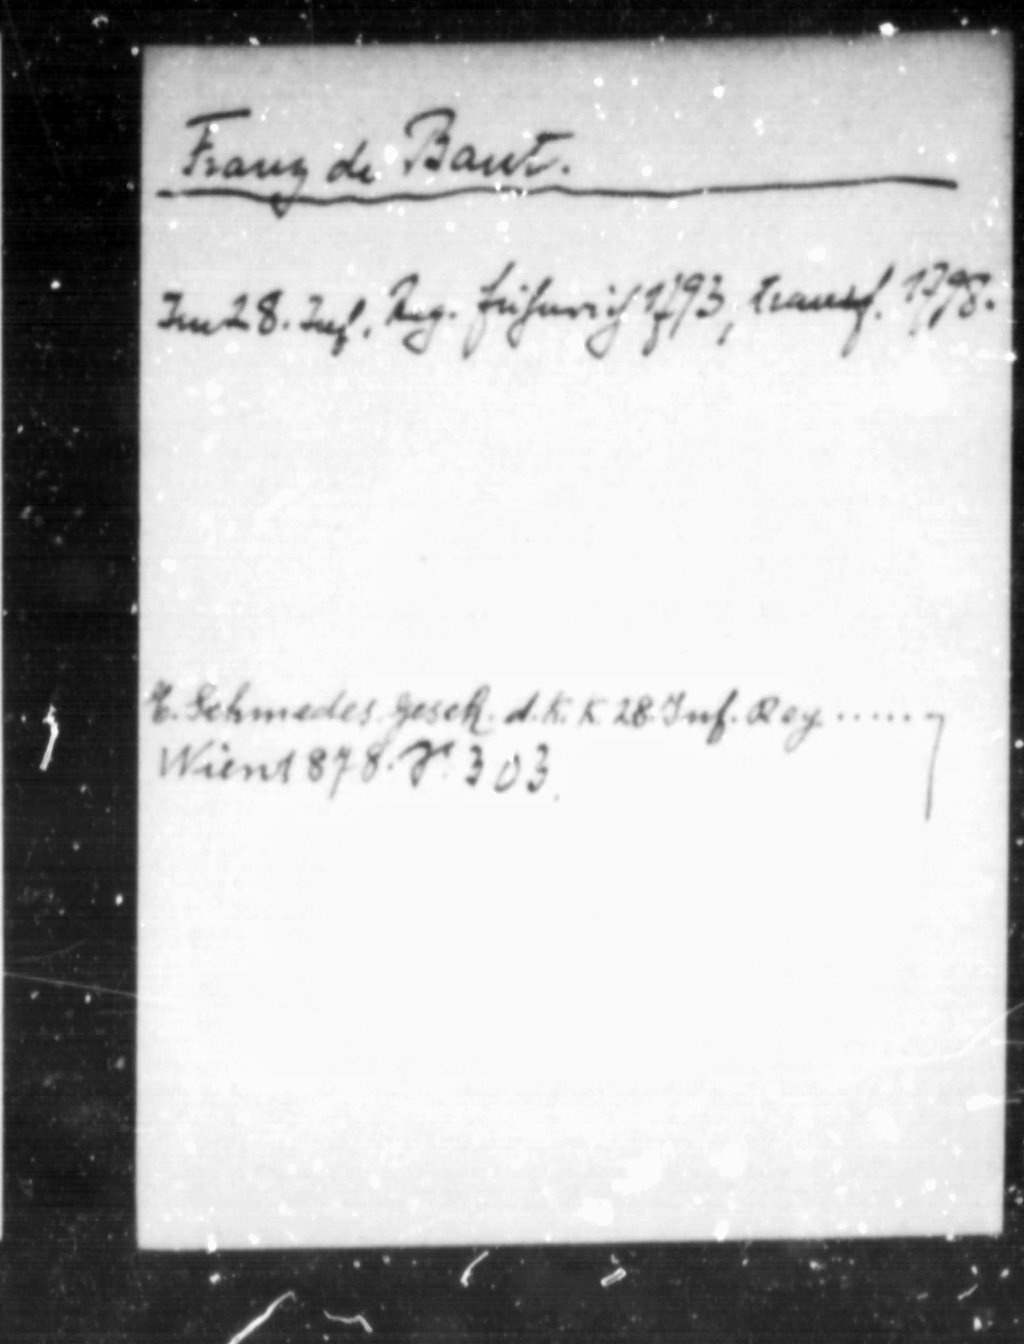 Franz de Baut.
Im 28. Inf. Reg. Fähnrich 1793, transf. 1798.
E. Schmedes. Gesch. d. k. k. 28. Inf. Reg......
Wien 1878. S. 303.